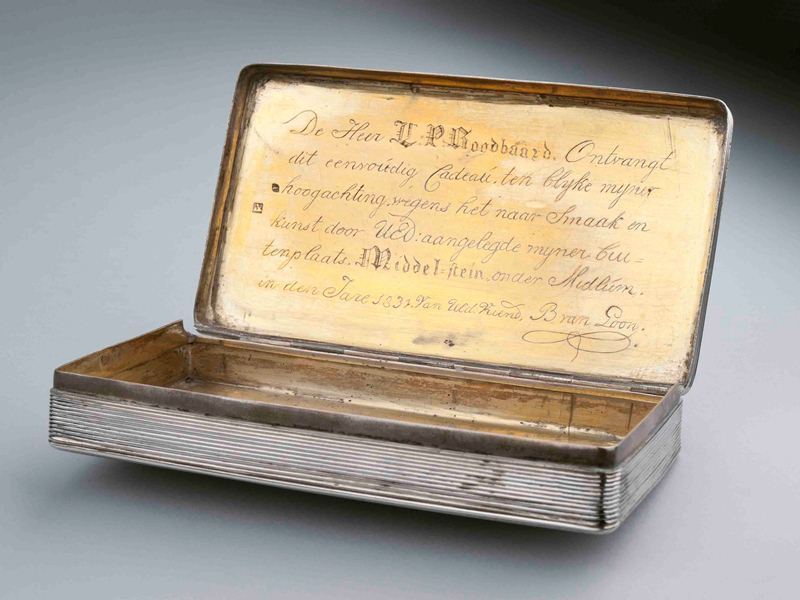 De Heer L. P. Roodbaard. Ontvangt
dit eenvoudig Cadeau, ten blyke myner
hoogachting, wegens het naar Smaak en
kunst door UED: aangelegde myner bui=
tenplaats. Middel=stein, onder Midlum.
in den Jare 1832. Van UEd. Vriend, B van Loon.